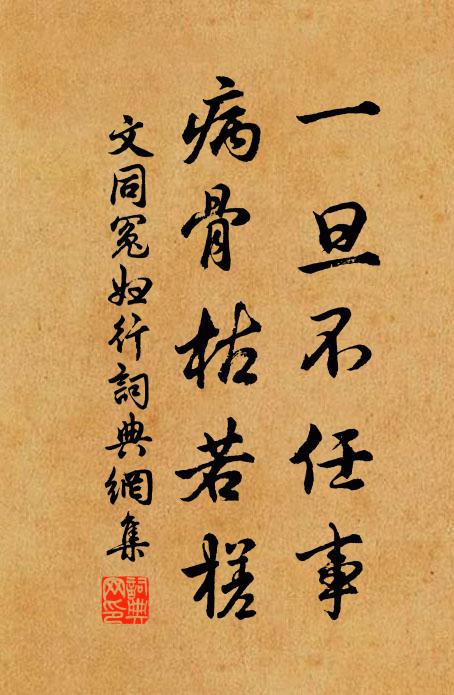 一旦不任事
病骨枯若槎
文同冤妇行詞典網集
詞典网印